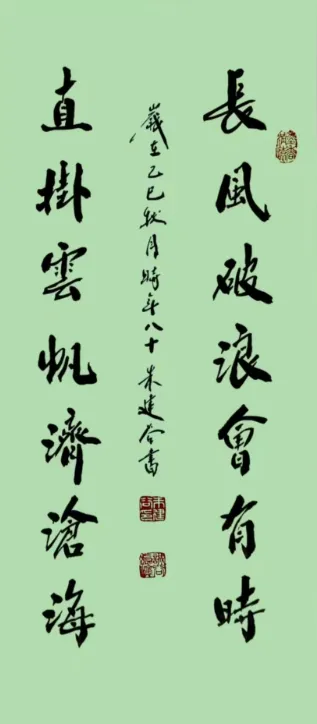 長風破浪會有時
直掛雲帆濟滄海
歲在乙巳秋月時年八十朱建合書